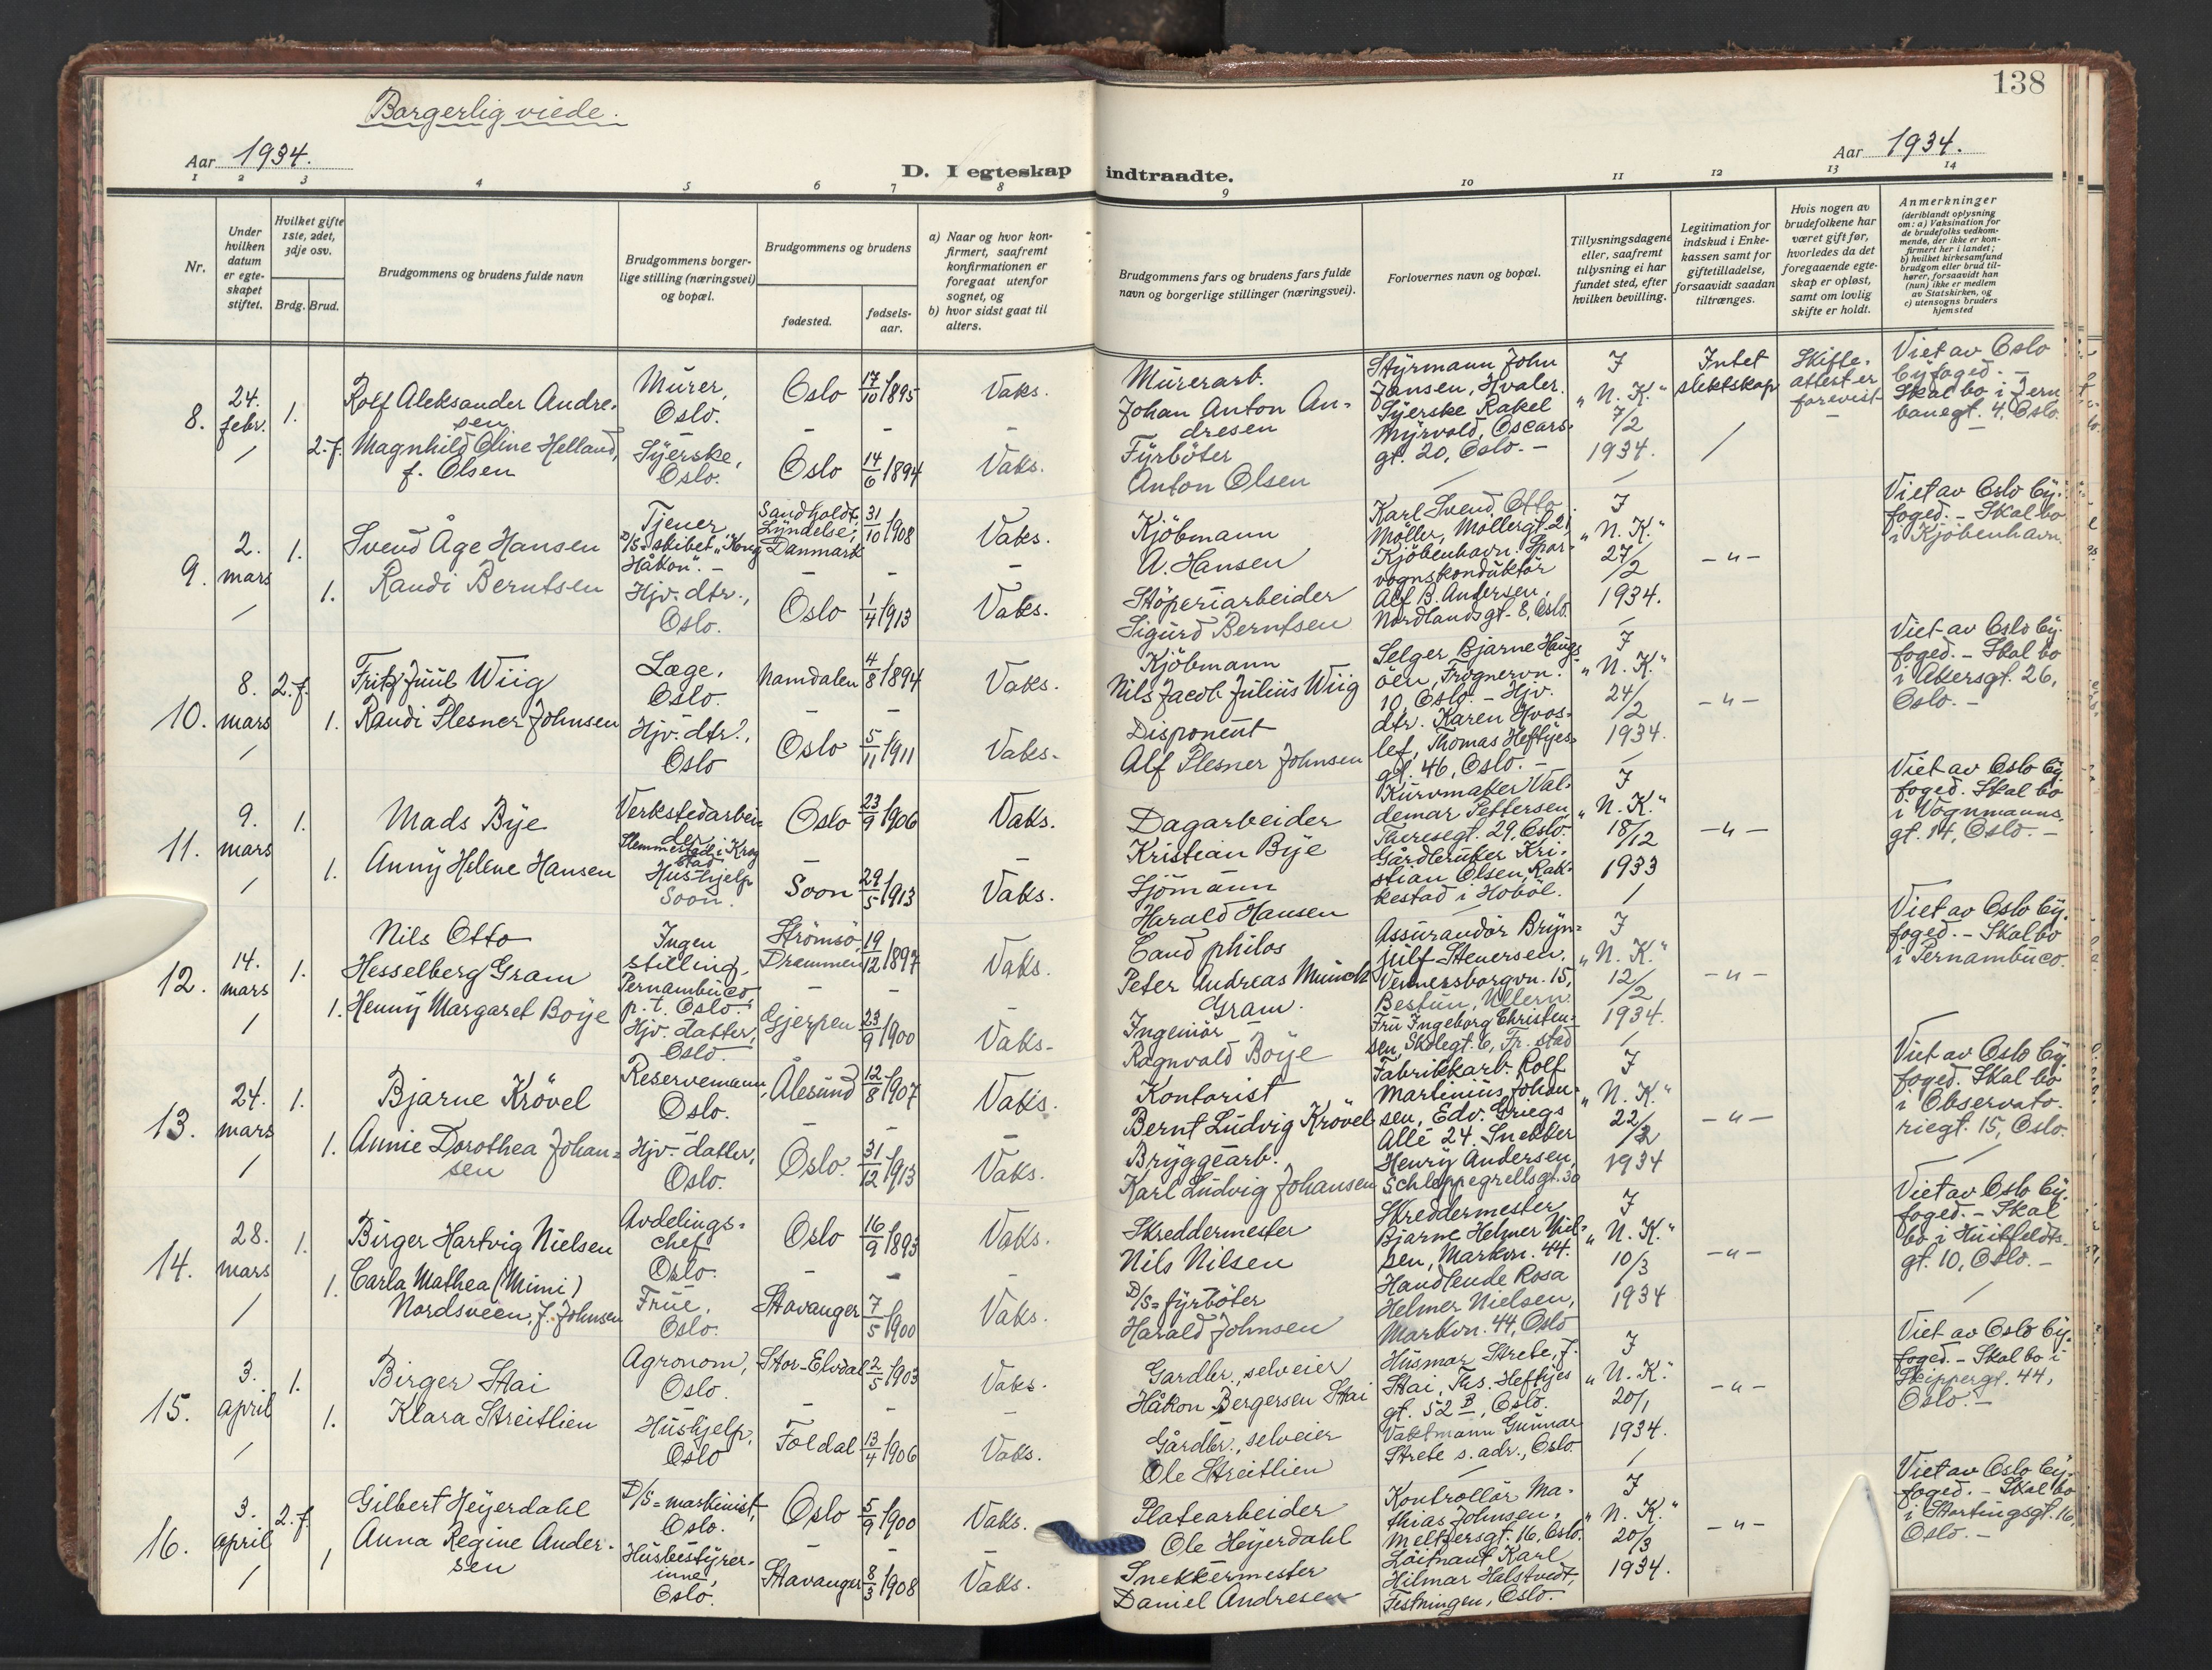 138
Borgerlig viede.
Aar 1934.
D. I egteskap indtraadte.
Aar 1934.
1 2 3 4 5 6 7 8 9 10 11 12 13 14
Nr.
Under hvilken datum er egteskapet stiftet.
Hvilket gifte 1ste, 2det, 3dje osv.
Brdg. Brud.
Brudgommens og brudens fulde navn
Brudgommens borgerlige stilling (næringsvei) og bopæl.
Brudgommens og brudens
fødested.
fødselsaar.
a) Naar og hvor konfirmert, saafremt konfirmationen er foregaat utenfor sognet, og
b) hvor sidst gaat til alters.
Brudgommens fars og brudens fars fulde navn og borgerlige stillinger (næringsvei).
Forlovernes navn og bopæl.
Tillysningsdagene eller, saafremt tillysning ei har fundet sted, efter hvilken bevilling.
Legitimation for indskud i Enkekassen samt for giftetilladelse, forsaavidt saadan tiltrænges.
Hvis nogen av brudefolkene har været gift før, hvorledes da det foregaaende egteskap er opløst, samt om lovlig skifte er holdt.
Anmerkninger
(deriblandt oplysning om: a) Vaksination for de brudefolks vedkommende, der ikke er konfirmert her i landet; b) hvilket kirkesamfund brudgom eller brud tilhører, forsaavidt han (hun) ikke er medlem av Statskirken, og c) utensogns bruders hjemsted
8.
24. febr.
1.
Rolf Aleksander Andresen
Murer, Oslo.
Oslo
17/10 1895
Vaks.
2. f.
Magnhild Oline Helland, f. Olsen
Syerske, Oslo.
Oslo
14/6 1894
Vaks.
Murerarb.
Johan Anton Andresen
Fyrböter
Anton Olsen
Styrmann John
Jansen, Hvaler.
Syerske Rakel
Myrvold, Oscars
gt. 20, Oslo. -
I
"N. K."
7/2
1934.
Intet
slektskap
Skifte-
attest er
forevist
Viet av Oslo
byfoged. -
Skal bo i Jern
banegt. 4, Oslo.
9.
2. mars
1.
Svend Åge Hansen
Tjener
D/S=skibet "Kong
Håkon". -
Sandholdt,
Lyndelse,
Danmark
31/10 1908
Vaks.
1.
Randi Berntsen
Hjv. dtr.,
Oslo.
Oslo
1/4 1913
Vaks.
Kjöbmann
A. Hansen
Stöperiarbeider
Sigurd Berntsen
Karl Svend Otto
Möller, Möllergt. 21
Kjöbenhavn. Spor-
vognskonduktör
Alf B. Andersen,
Nordlandsgt. 8, Oslo.
I
"N. K."
27/2
1934.
- " -
Viet av Oslo by-
foged. - Skal bo
i Kjöbenhavn.
10.
8. mars
2. f.
Fritz Juul Wiig
Læge,
Oslo.
Namdalen
4/8 1894
Vaks.
1.
Randi Plesner Johnsen
Hjv. dtr.,
Oslo
Oslo
5/11 1911
Vaks.
Kjöbmann
Nils Jacob Julius Wiig
Disponent
Alf Plesner Johnsen
Selger Bjarne Haugs
öen, Frognervn.
10, Oslo. - Hjv.
dtr. Karen Hvos-
lef, Thomas Heftyes
gt. 46, Oslo. -
I
"N. K."
24/2
1934.
- " -
Viet av Oslo by-
foged. - Skal bo
i Akersgt. 26,
Oslo. -
11.
9. mars
1.
Mads Bye
Verkstedarbei-
der
Slemmestad i Krog
stad
Oslo
23/9 1906
Vaks.
1.
Anny Helene Hansen
Hushjelp
Soon.
Soon
29/5 1913
Vaks.
Dagarbeider
Kristian Bye
Sjömann
Harald Hansen
Kurvmaker Val-
demar Pettersen
Theresegt. 29, Oslo.
Gårdbruker Kri-
stian Olsen, Rak-
kestad i Hoböl.
I
"N. K."
18/12
1933
- " -
Viet av Oslo by-
foged. Skal bo
i Vognmanns
gt. 14, Oslo. -
12.
14. mars
1.
Nils Otto
Hesselberg Gram
Ingen
stilling,
Pernambuco,
p. t. Oslo.
Strömsö
Drammen
19/12 1897
Vaks.
1.
Henny Margaret Boye
Hjv. datter,
Oslo.
Gjerpen
23/9 1900
Vaks.
Cand philos
Peter Andreas Munch
Gram.
Ingeniör
Ragnvald Boye
Assurandör Bryn-
julf Stenersen,
Vennersborgvn. 15,
Bestun, Ullern
Fru Ingeborg Christen-
sen, Skolegt. 6, Fr. stad
I
"N. K."
12/2
1934.
- " -
Viet av Oslo by-
foged. - Skal bo
i Pernambuco.
13.
24. mars
1.
Bjarne Krövel
Reservemann,
Oslo.
Ålesund
12/8 1907
Vaks.
1.
Annie Dorothea Johan-
sen
Hjv. datter,
Oslo.
Oslo.
31/12 1913
Vaks.
Kontorist
Bernt Ludvig Krövel
Bryggearb.
Karl Ludvig Johansen
Fabrikkarb. Rolf
Martinius Johan-
sen, Edv. Griegs
Allé 24. Snekker
Henry Andersen,
Schleppegrellsgt. 30
I
"N. K."
22/2
1934
- " -
Viet av Oslo by-
foged. Skal bo
i Observato-
riegt. 15, Oslo.
14.
28. mars
1.
Birger Hartvig Nielsen
Avdelings-
chef
Oslo.
Oslo
16/9 1893
Vaks.
1.
Carla Mathea (Mimi)
Nordsveen, f. Johnsen
Frue,
Oslo.
Stavanger
7/5 1900
Vaks.
Skreddermester
Nils Nilsen
D/S=fyrböter
Harald Johnsen
Skreddermester
Bjarne Helmer Niel-
sen, Markvn. 44.
Handlende Rosa
Helmer Nielsen,
Markvn. 44, Oslo
I
"N. K."
10/3
1934
- " -
Viet av Oslo by-
foged. - Skal
bo i Huitfeldts
gt. 10, Oslo. -
15.
3. april
1.
Birger Stai
Agronom,
Oslo.
Stor-Elvdal
2/5 1903
Vaks.
1.
Klara Streitlien
Hushjelp,
Oslo
Foldal
13/4 1906
Vaks.
Gardbr., selveier
Håkon Bergersen Stai
Gårdbr., selveier
Ole Streitlien
Husmor Strebe, f.
Stai, Ths. Heftyes
gt. 52 B, Oslo.
Vaktmann Gunnar
Strebe s. adr., Oslo.
I
"N. K."
20/1
1934.
- " -
Viet av Oslo by-
foged. - Skal bo i
Skippergt. 44,
Oslo. -
16.
3. april
2. f.
Gilbert Heyerdahl
D/S=maskinist,
Oslo.
Oslo
5/9 1900
Vaks.
1
Anna Regine Ander-
sen
Husbestyrer-
inne,
Oslo.
Stavanger
8/3 1908
Vaks.
Platearbeider
Ole Heyerdahl
Snekkermester
Daniel Andresen
Kontrollör Ma-
thias Johnsen,
Meltzersgt. 16, Oslo.
Löitnant Karl
Hilmar Halstvedt,
Festningen, Oslo.
I
"N. K."
20/3
1934.
- " -
Viet av Oslo by-
foged. - Skal bo
i Stortingsgt. 16,
Oslo. -